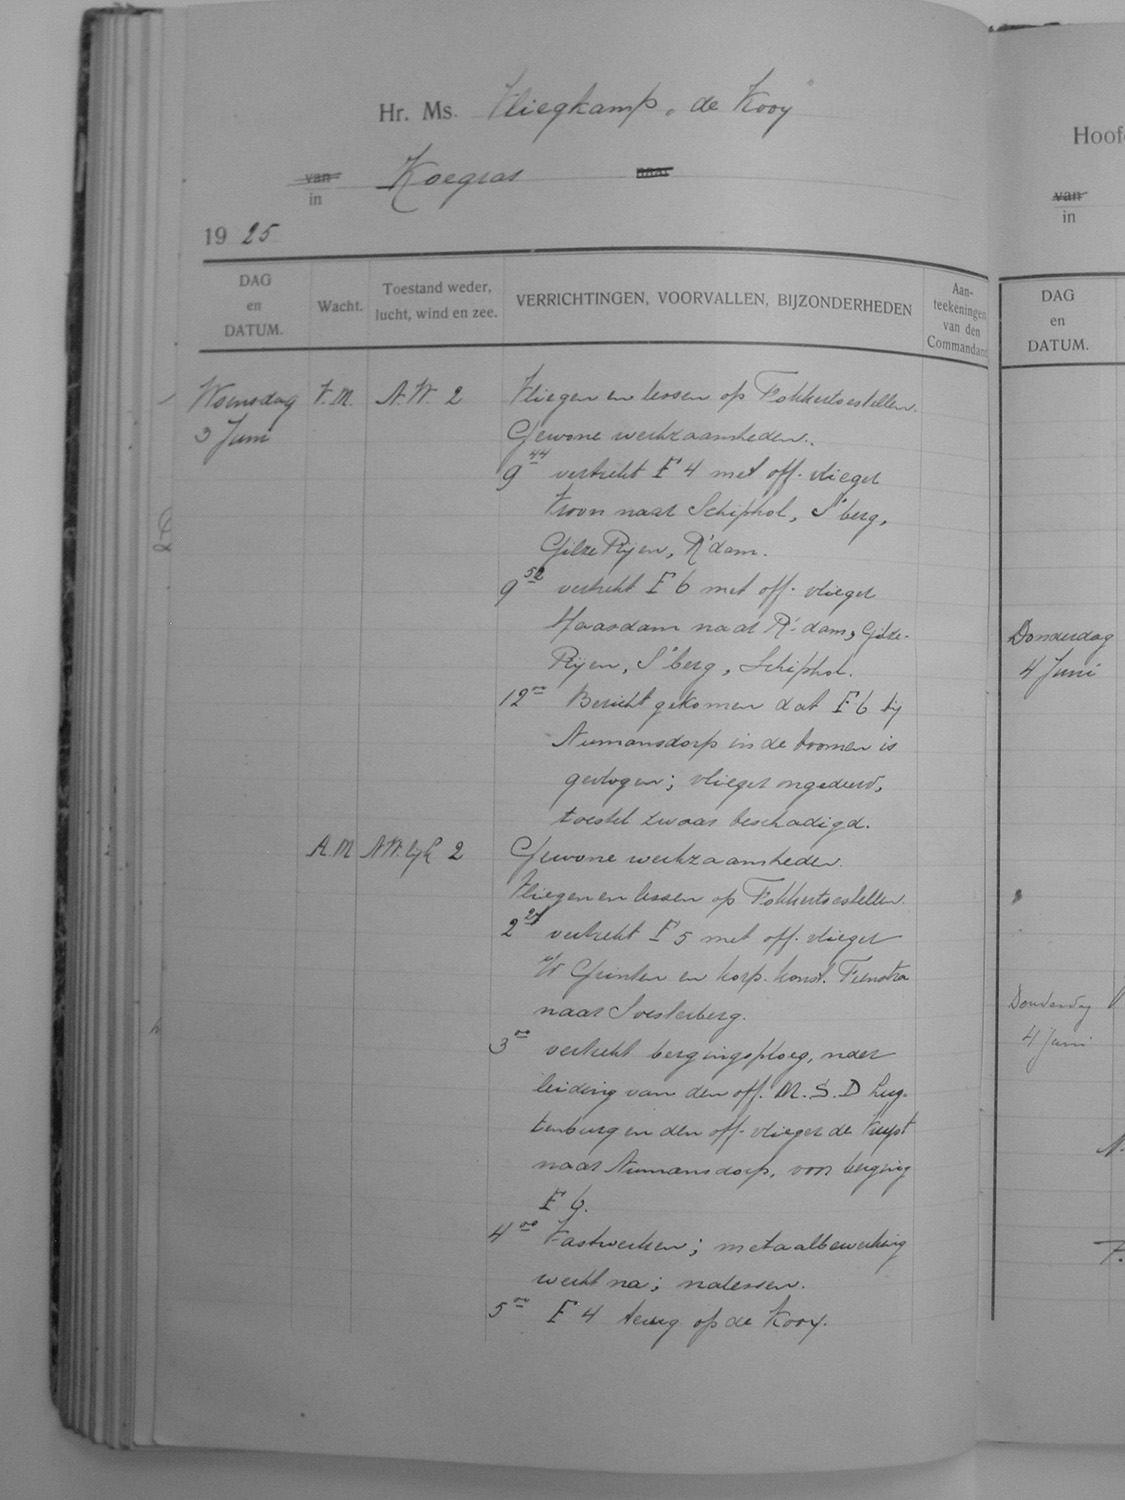 Hr. Ms. Vliegkamp „de Kooy"
van Koegras naar
in
19 25
DAG en DATUM.
Wacht.
Toestand weder, lucht, wind en zee.
VERRICHTINGEN, VOORVALLEN, BIJZONDERHEDEN
Aan-
teekeningen
van den
Commandant
Woensdag V.M. N.W. 2 Vliegen en lessen op Fokkertoestellen.
3 Juni Gewone werkzaamheden.
9 44 vertrekt F 4 met off. vlieger
Kroon naar Schiphol, S'berg,
Gilze Rijen, R'dam.
9 52 vertrekt F 6 met off. vlieger
Haasdam naar R'dam, Gilze-
Rijen, S'berg, Schiphol.
12 00 Bericht gekomen dat F 6 bij
Numansdorp in de boomen is
gevlogen; vlieger ongedeerd,
toestel zwaar beschadigd.
A.M 2 Gewone werkzaamheden.
Vliegen en lessen op Fokkertoestellen.
2 27 vertrekt F 5 met off. vlieger
en korp. konst. Feenstra
naar Soesterberg.
3 00 vertrekt bergingsploeg, onder
leiding van den off. M.S.D Lug-
tenburg en den off. vlieger de
naar Numansdorp, voor berging
F 6.
4 00 Vastwerken; metaalbewerking
werkt na; nalessen.
5 00 F 4 terug op de Kooy.
Hoof
van
in
DAG
en
DATUM.
Donderdag
4 Juni
Donderdag
4 Juni